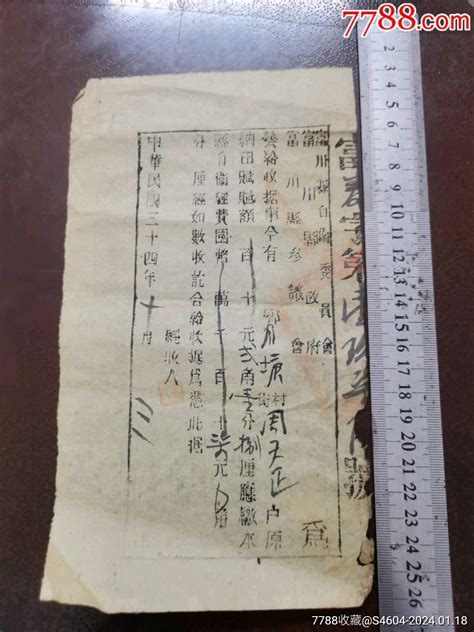 7788.com
富川縣自衛委員會
富川縣政府
富川縣參議會
為
發給收據事今有鄉塘村街周天正户原
納田賦賦額百十元弍角壹分捌厘應繳本
縣自衛經費國幣萬千百十柒元角
分厘經如數收訖合給收據為憑此據
經收人
中華民國三十四年十月
號
1 2 3 4 5 6 7 8 9 10 11 12 13 14 15 16 17 18 19 20 21 22 23 24 25 26
7788收藏@S4604-2024.01.18